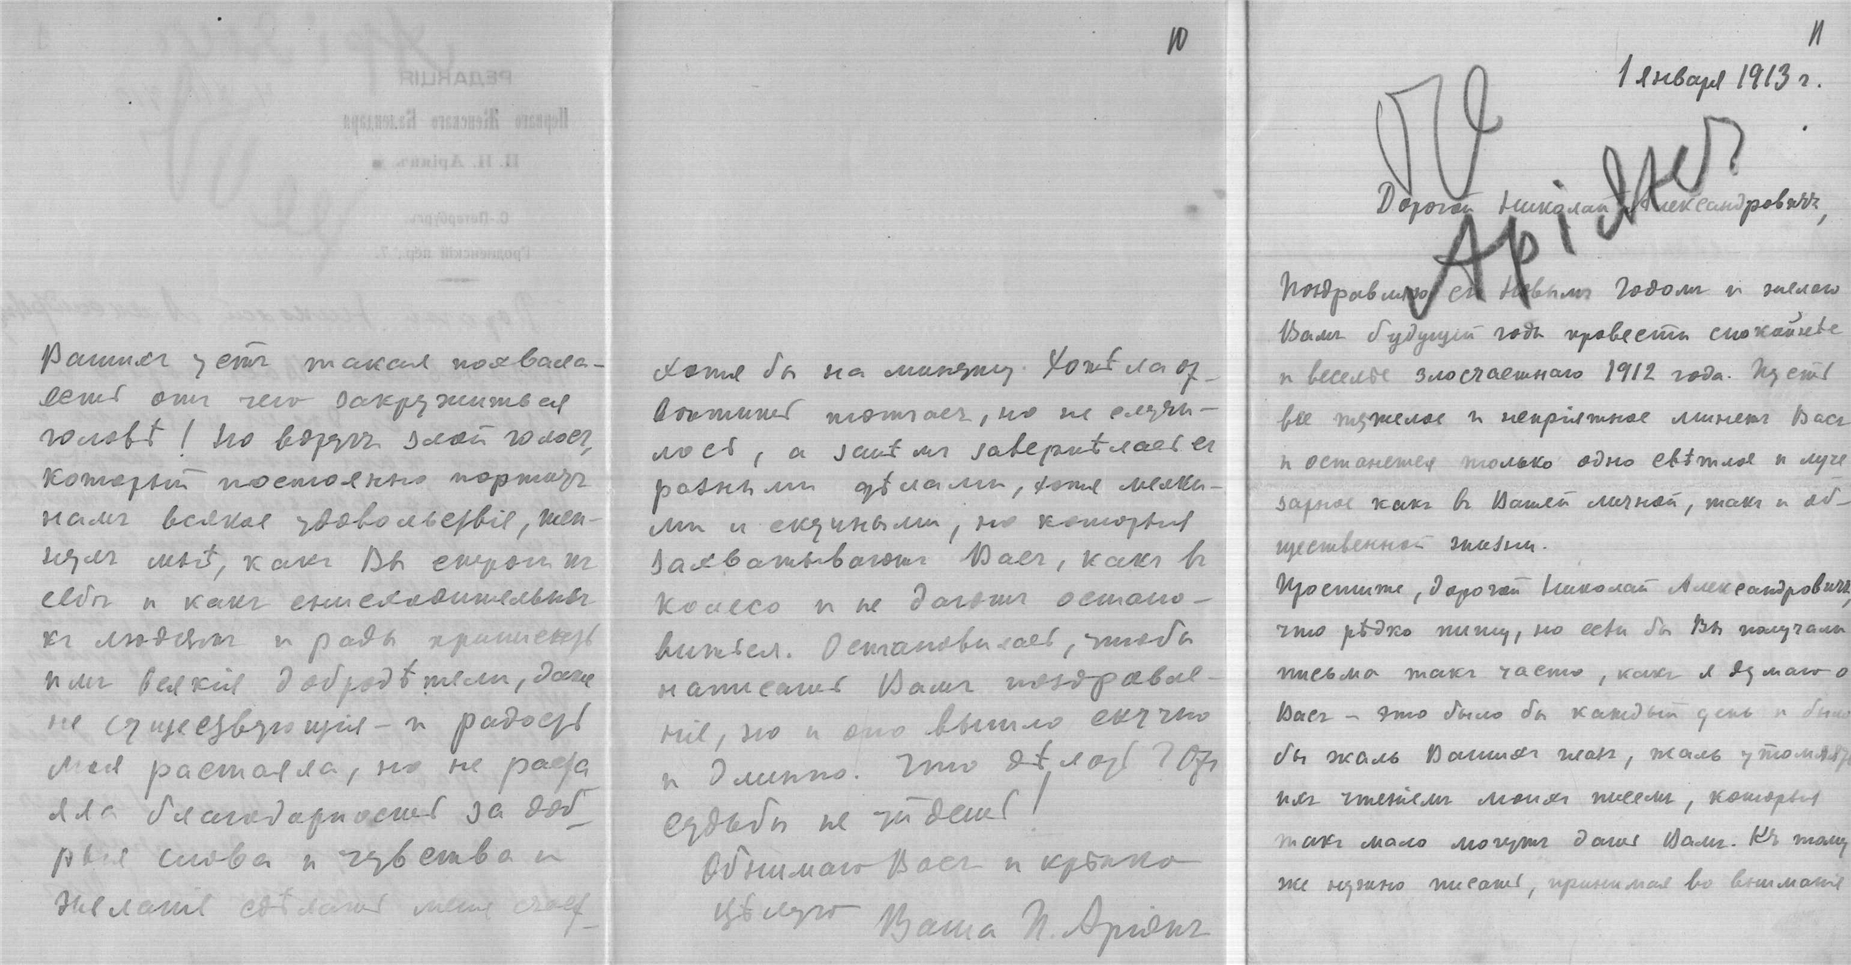 Вашихъ устъ такая похвала –
есть отъ чего закружиться
головѣ! Но вдругъ злой голосъ,
который постоянно портитъ
намъ всякое удовольствіе, шеп-
нулъ мнѣ, какъ Вы скромны
и какъ снисходительны
къ людямъ и рады приписать
имъ всякія добродѣтели, даже
не существующія – и радость
моя растаяла, но не раста
яла благодарность за доб-
рыя слова и чувства и
желаніе сдѣлать меня счаст-
10
хотя бы на минуту. Хотѣла от-
вѣтить тотчасъ, но не случи-
лось, а затѣмъ завертѣлась съ
разными дѣлами, хотя мелки-
ми и скучными, но которыя
захватываютъ Васъ, какъ въ
колесо и не даютъ остано-
виться. Остановилась, чтобы
написать Вамъ поздравле-
ніе, но и оно вышло скучно
и длинно. Что дѣлать? Отъ
судьбы не уйдешь!
Обнимаю Васъ и крѣпко
цѣлую Ваша П. Аріянъ
11
1 Января 1913 г.
Дорогой Николай Александровичъ,
Поздравляю съ Новымъ Годомъ и желаю
Вамъ будущій годъ провести спокойнѣе
и веселѣе злосчастнаго 1912 года. Пусть
все тяжелое и непріятное минетъ Васъ
и останется только одно свѣтлое и луче
зарное какъ въ Вашей личной, такъ и об-
щественной жизни.
Простите, дорогой Николай Александровичъ,
что рѣдко пишу, но если бы Вы получали
письма такъ часто, какъ я думаю о
Васъ – это было бы каждый день и было
бы жаль Вашихъ глазъ, жаль утомлять
ихъ чтеніемъ моихъ писемъ, которыя
такъ мало могутъ дать Вамъ. Къ тому
же нужно писать, принимая во вниманіе